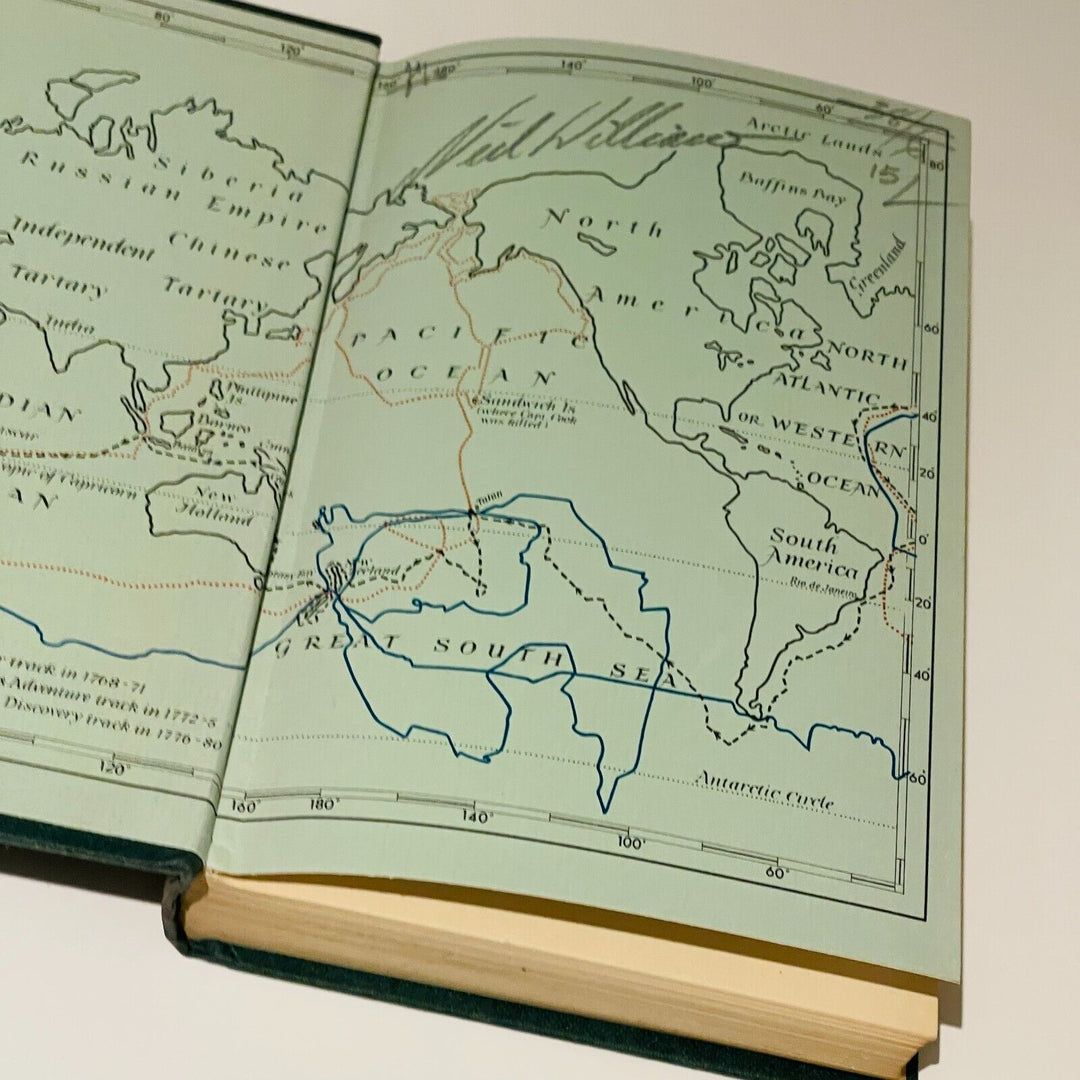 80
120°
Siberia
Russian Empire
Independent
Tartary
Chinese
Tartary
India
Philippine
Is
Borneo
DIAN
Tropic of Capricorn
AN
New
Holland
track in 1768-71
Adventure track in 1772-5
Discovery track in 1776-80
120°
180°
140°
100°
60°
Neil Williams
15/
Arctic Lands
80
Baffins Bay
Greenland
North
America
60
PACIFIC
OCEAN
NORTH
ATLANTIC
OR WESTERN
OCEAN
40
20
0°
20
40
60
Sandwich Is
(where Capt Cook
was killed)
South
America
Rio de Janeiro
GREAT SOUTH SEA
Antarctic Circle
160°
180°
140°
100°
60°